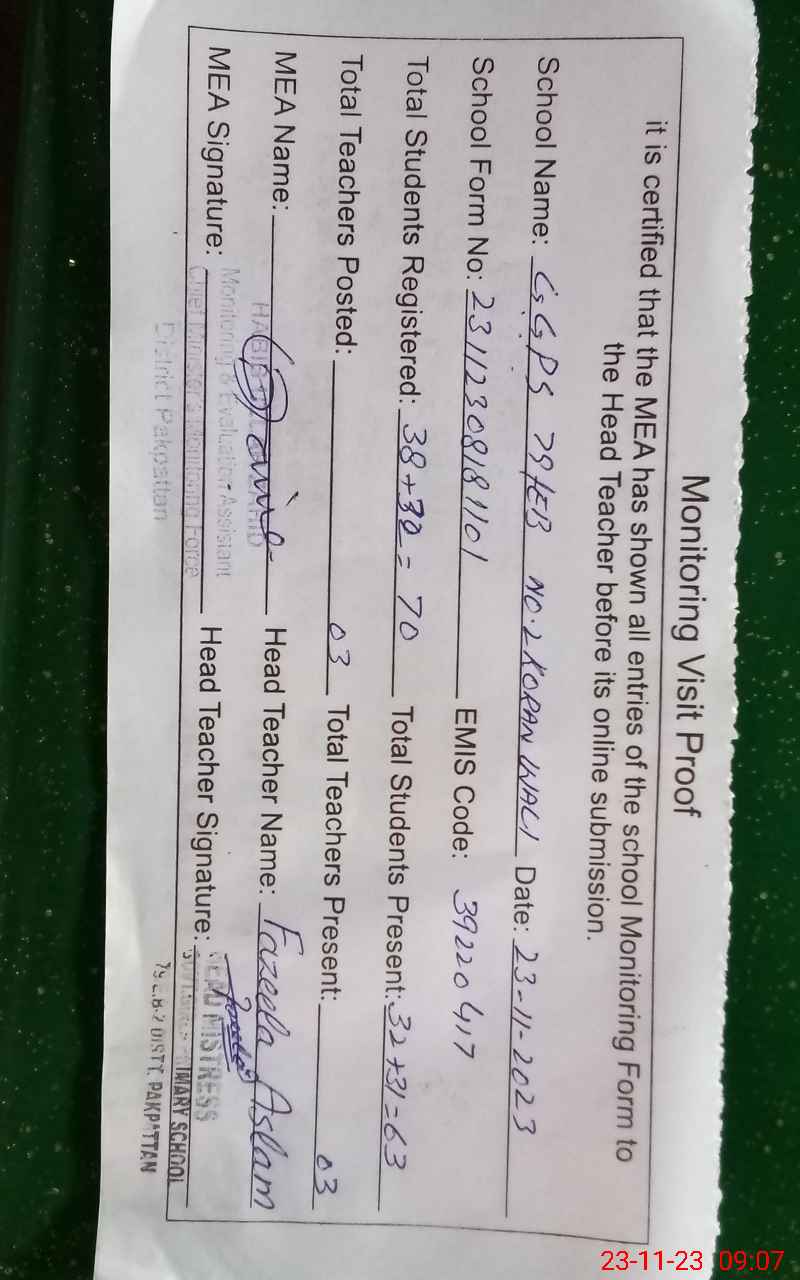 Monitoring Visit Proof
it is certified that the MEA has shown all entries of the school Monitoring Form to
the Head Teacher before its online submission.
School Name: GGPS 79/EB NO.2 KORAN WALI Date: 23-11-2023
School Form No: 23112308181101 EMIS Code: 39220417
Total Students Registered: 38+32=70 Total Students Present: 32+31=63
Total Teachers Posted: 03 Total Teachers Present: 03
MEA Name: Head Teacher Name: Fazeela Aslam
MEA Signature: Head Teacher Signature:
Monitoring & Evaluation Assistant
Chief Minister's Monitoring Force
District Pakpattan
HEAD MISTRESS
PRIMARY SCHOOL
DISTT. PAKPATTAN
23-11-23 09:07